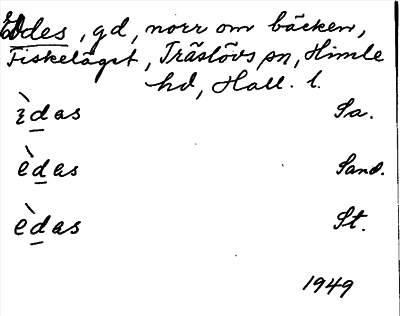 Eddes, gd, norr om bäcken,
Fiskeläget, Träslövs sn, Himle
hd, Hall. l.
ɛ̀das Sa.
èdas Sand.
èdas St.
1949